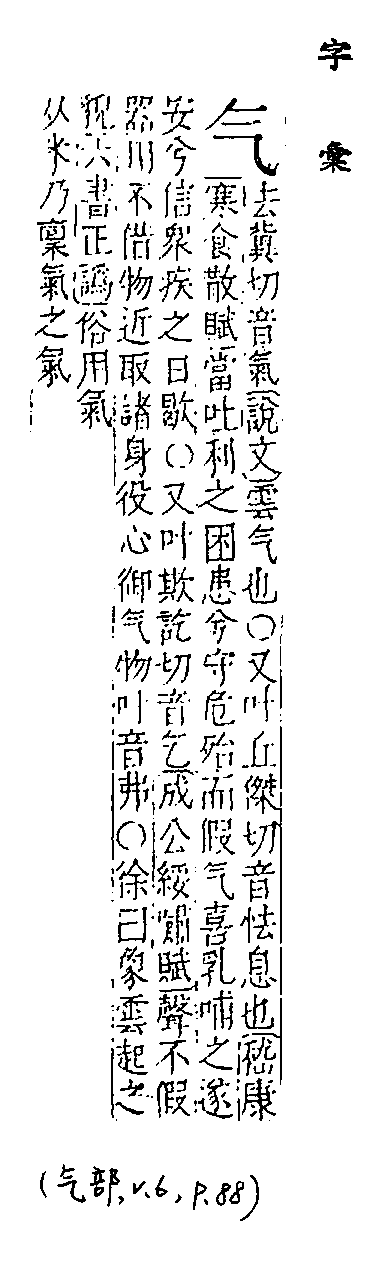 字彙
气
去冀切音氣說文雲气也〇又叶丘傑切音怯息也嵇康
寒食散賦當吐利之困患兮守危殆而假气喜乳哺之遂
安兮信衆疾之日歇〇又叶欺訖切音乞成公綏嘯賦聲不假
器用不借物近取諸身役心御气物叶音弗〇徐曰象雲起之
貌六書正譌俗用氣
从米乃稟氣之氣
(气部, v.6, p.88)